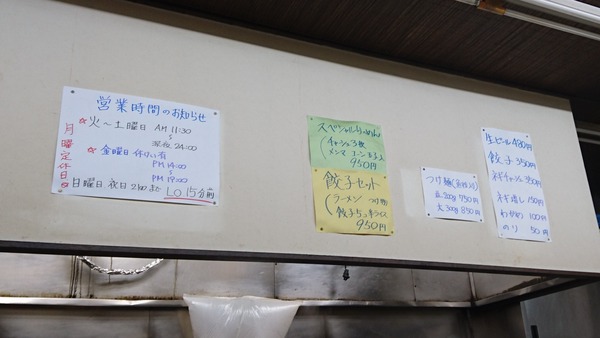 営業時間のお知らせ
火～土曜日 AM 11:30
～
深夜 24:00
金曜日 休けい有
PM 14:00
～
PM 19:00
日曜日 祝日 21:00 まで LO 15分前
月曜定休日
スペシャルらーめん
(チャーシュー3枚
メンマ コーン
950円
餃子セット
(ラーメン つけ麺)
餃子5ヶ
950円
つけ麺
並200g 750円
大300g 850円
生ビール 480円
餃子 350円
ネギチャーシュー 350円
ネギ増し 150円
わかめ 100円
のり 50円